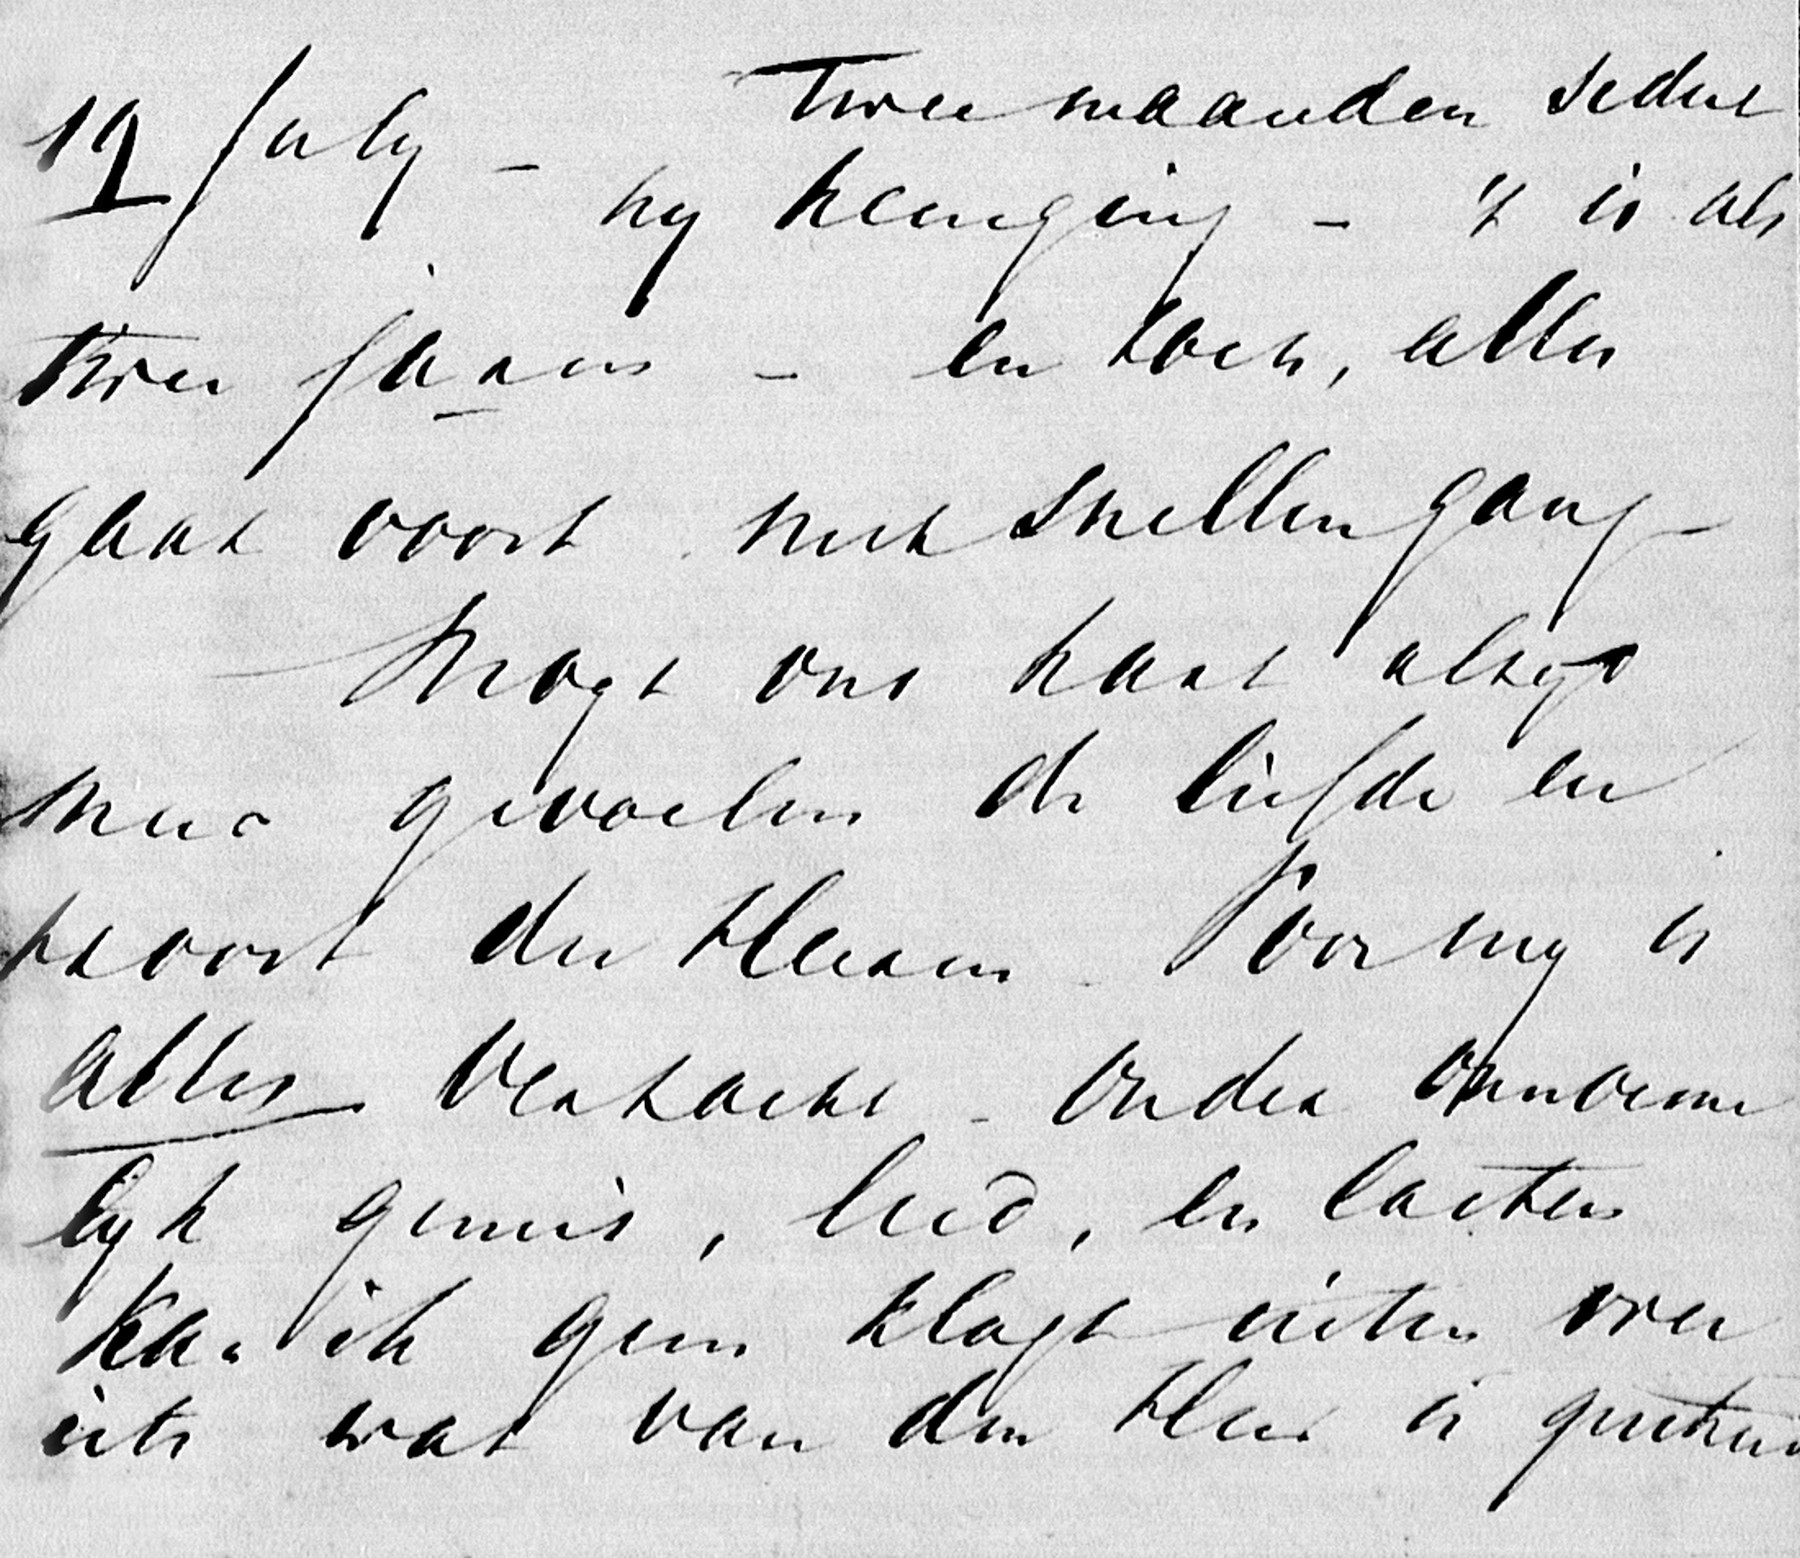 19 July - Twee maanden sedert
hy heenging - 't is als
twee jaren - en toch, alles
gaat voort met snellen gang -
Mogt ons hart altyd
meer gevoelen de liefde en
trouw des Heeren - Voor my is
alles verzacht - onder onnoeme
lyk gemis, leed, en lasten
kan ik geen klagt uiten over
iets wat van den Heer is